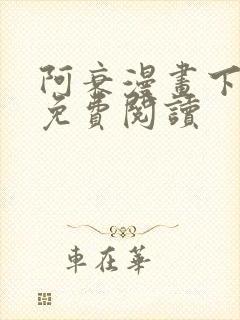 阿衰漫畫下
免費閱讀
車在華